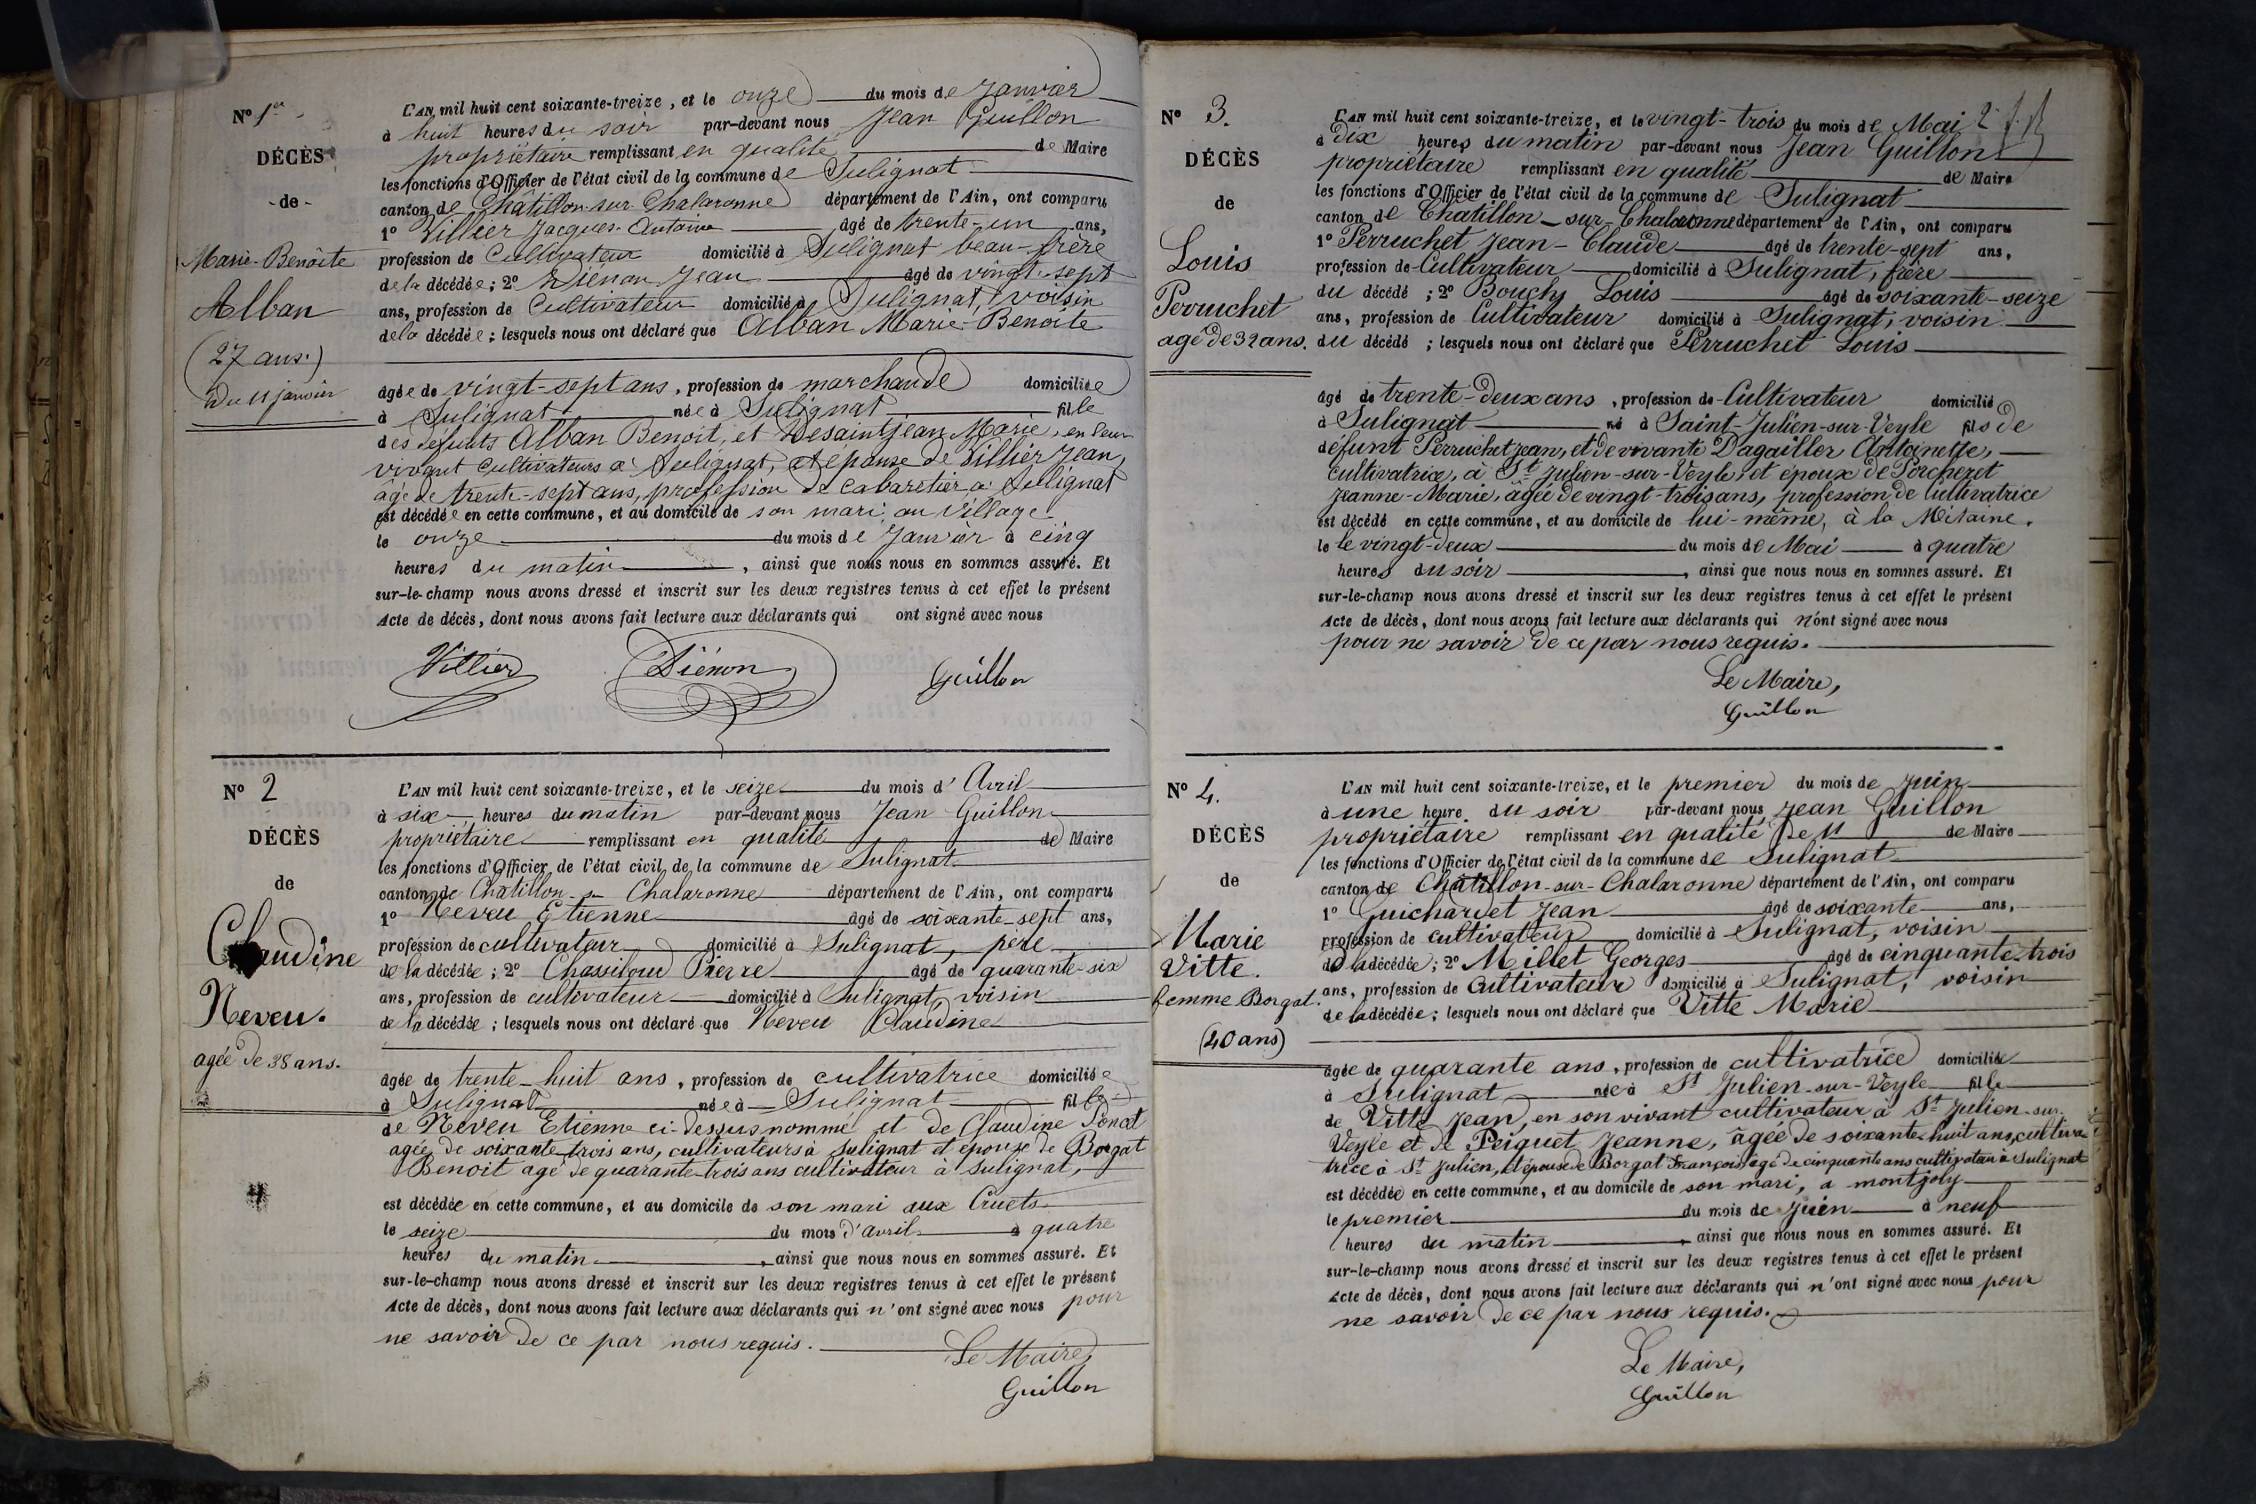 N° 1er
DÉCÈS
- de -
Marie-Benoîte
Alban
(27 ans.)
Du 11 janvier
L'AN mil huit cent soixante-treize, et le onze du mois de Janvier
à huit heures du soir par-devant nous Jean Guillon
propriétaire remplissant en qualité de Maire
les fonctions d'Officier de l'état civil de la commune de Sulignat
canton de Châtillon-sur-Chalaronne département de l'Ain, ont comparu
1° Villier Jacques-Antoine âgé de trente-un ans,
profession de Cultivateur domicilié à Sulignat beau-frère
de la décédée; 2° Diénon Jean âgé de vingt-sept
ans, profession de Cultivateur domicilié à Sulignat, voisin
de la décédée; lesquels nous ont déclaré que Alban Marie-Benoite
âgée de vingt-sept ans, profession de marchande domiciliée
à Sulignat née à Sulignat fille
des défunts Alban Benoit, et Desaintjean Marie, en leur
vivant cultivateurs à Sulignat, et épouse de Villier Jean,
âgé de trente-sept ans, profession de cabaretier à Sulignat
est décédée en cette commune, et au domicile de son mari au Village
le onze du mois de Janvier à cinq
heures du matin, ainsi que nous nous en sommes assuré. Et
sur-le-champ nous avons dressé et inscrit sur les deux registres tenus à cet effet le présent
Acte de décès, dont nous avons fait lecture aux déclarants qui ont signé avec nous
Villier Diénon Guillon
N° 2
DÉCÈS
de
Claudine
Neveu.
agée de 38 ans.
L'AN mil huit cent soixante-treize, et le seize du mois d'Avril
à six heures du matin par-devant nous Jean Guillon
propriétaire remplissant en qualité de Maire
les fonctions d'Officier de l'état civil de la commune de Sulignat
canton de Chatillon-sur Chalaronne département de l'Ain, ont comparu
1° Neveu Etienne âgé de soixante-sept ans,
profession de cultivateur domicilié à Sulignat, père
de la décédée; 2° Chassiboud Pierre âgé de quarante-six
ans, profession de cultivateur domicilié à Sulignat, voisin
de la décédée; lesquels nous ont déclaré que Neveu Claudine
âgée de trente-huit ans, profession de cultivatrice domiciliée
à Sulignat née à Sulignat fille
de Neveu Etienne ci-dessus nommé et de Claudine
agée de soixante trois ans, cultivateurs à Sulignat et épouse de Borgat
Benoit agé de quarante-trois ans cultivateur à Sulignat,
est décédée en cette commune, et au domicile de son mari aux Cruets
le seize du mois d'avril à quatre
heures du matin, ainsi que nous nous en sommes assuré. Et
sur-le-champ nous avons dressé et inscrit sur les deux registres tenus à cet effet le présent
Acte de décès, dont nous avons fait lecture aux déclarants qui n'ont signé avec nous pour
ne savoir de ce par nous requis.
Le Maire,
Guillon
N° 3.
DÉCÈS
de
Louis
Perruchet
agé de 32 ans.
L'AN mil huit cent soixante-treize, et le vingt-trois du mois de Mai
à dix heures du matin par-devant nous Jean Guillon
propriétaire remplissant en qualité de Maire
les fonctions d'Officier de l'état civil de la commune de Sulignat
canton de Chatillon-sur-Chalaronne département de l'Ain, ont comparu
1° Perruchet Jean-Claude âgé de trente-sept ans,
profession de Cultivateur domicilié à Sulignat, frère
du décédé; 2° Bouchy Louis âgé de soixante-seize
ans, profession de Cultivateur domicilié à Sulignat, voisin
du décédé; lesquels nous ont déclaré que Perruchet Louis
âgé de trente-deux ans, profession de Cultivateur domicilié
à Sulignat né à Saint-Julien-sur-Veyle fils de
défunt Perruchet Jean, et de vivante Dagailler Antoinette,
cultivatrice, à St Julien-sur-Veyle, et époux de Porcheret
Jeanne-Marie, âgée de vingt-trois ans, profession de Cultivatrice
est décédé en cette commune, et au domicile de lui-même, à la Mitaine.
le le vingt-deux du mois de Mai à quatre
heures du soir, ainsi que nous nous en sommes assuré. Et
sur-le-champ nous avons dressé et inscrit sur les deux registres tenus à cet effet le présent
Acte de décès, dont nous avons fait lecture aux déclarants qui n'ont signé avec nous
pour ne savoir de ce par nous requis.
Le Maire,
Guillon
N° 4.
DÉCÈS
de
Marie
Vitte.
femme Borgat.
(40 ans)
L'AN mil huit cent soixante-treize, et le premier du mois de Juin
à une heure du soir par-devant nous Jean Guillon
propriétaire remplissant en qualité de M de Maire
les fonctions d'Officier de l'état civil de la commune de Sulignat
canton de Chatillon-sur-Chalaronne département de l'Ain, ont comparu
1° Guichardet Jean âgé de soixante ans,
profession de cultivateur domicilié à Sulignat, voisin
de la décédée; 2° Millet Georges âgé de cinquante-trois
ans, profession de Cultivateur domicilié à Sulignat, voisin
de la décédée; lesquels nous ont déclaré que Vitte Marie
âgée de quarante ans, profession de cultivatrice domiciliée
à Sulignat née à St Julien-sur-Veyle fille
de Vitte Jean, en son vivant cultivateur à St Julien-sur-
Veyle et de Peiguet Jeanne, âgée de soixante-huit ans, cultiva-
trice à St Julien, et épouse de Borgat François âgé de cinquante ans cultivateur à Sulignat
est décédée en cette commune, et au domicile de son mari, a montjoly
le premier du mois de Juin à neuf
heures du matin, ainsi que nous nous en sommes assuré. Et
sur-le-champ nous avons dressé et inscrit sur les deux registres tenus à cet effet le présent
Acte de décès, dont nous avons fait lecture aux déclarants qui n'ont signé avec nous pour
ne savoir de ce par nous requis.
Le Maire,
Guillon